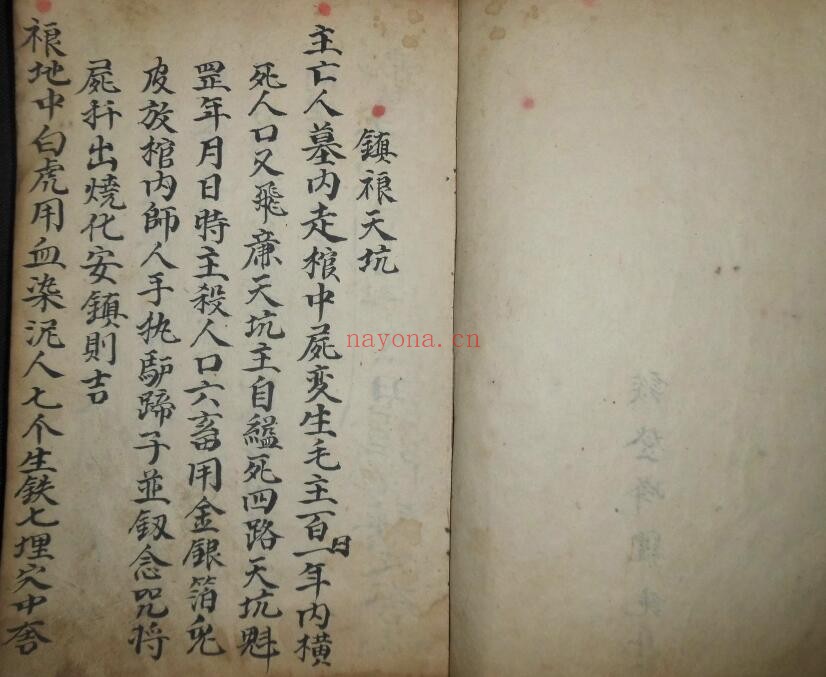 鎮裉天坑
主亡人墓内走棺中屍変生毛主一百日一年内横
死人口又飛廉天坑主自縊死四路天坑魁
罡年月日時主殺人口六畜用金銀箔兎
皮放棺内師人手执馿蹄子並釼念咒将
屍扞出燒化安鎮則吉
裉地中白虎用血染泥人七个生鉄七埋穴中
nayona.cn